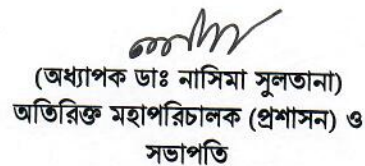 (অধ্যাপক ডাঃ নাসিমা সুলতানা)
অতিরিক্ত মহাপরিচালক (প্রশাসন) ও
সভাপতি